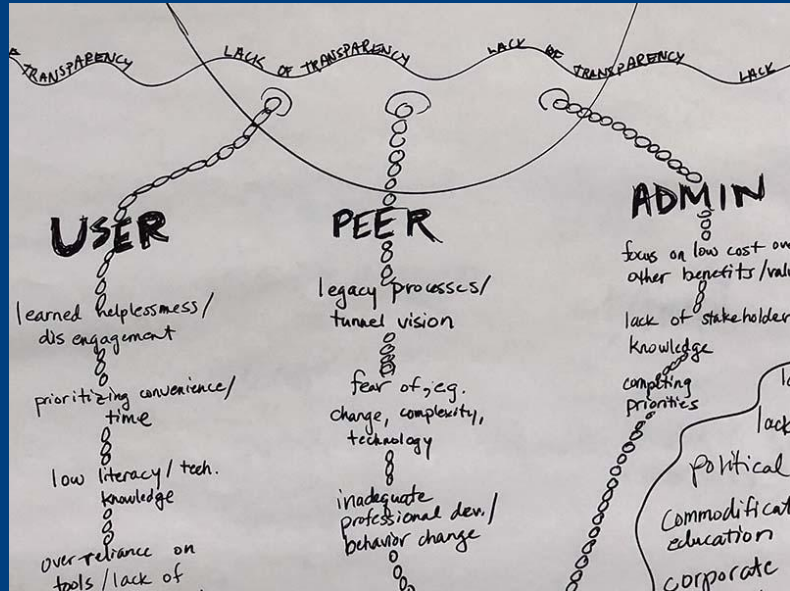 TRANSPARENCY LACK OF TRANSPARENCY LACK OF TRANSPARENCY LACK
USER
learned helplessmess/
dis engagement
prioritizing convenience/
time
low literacy/tech.
knowledge
over reliance on
tools/lack of
PEER
legacy processes/
tunnel vision
fear of, eg.
change, complexity,
technology
inadequate
professional dev./
behavior change
ADMIN
focus on low cost
other benefits/
lack of stakeholder
knowledge
competing
priorities
political
education
corporate